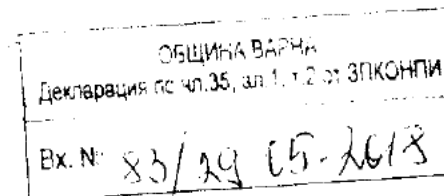 ОБЩИНА ВАРНА
Декларация по чл.35, ал.1, т.2 от ЗПКОНПИ
Вх. № 83/29 05-2018